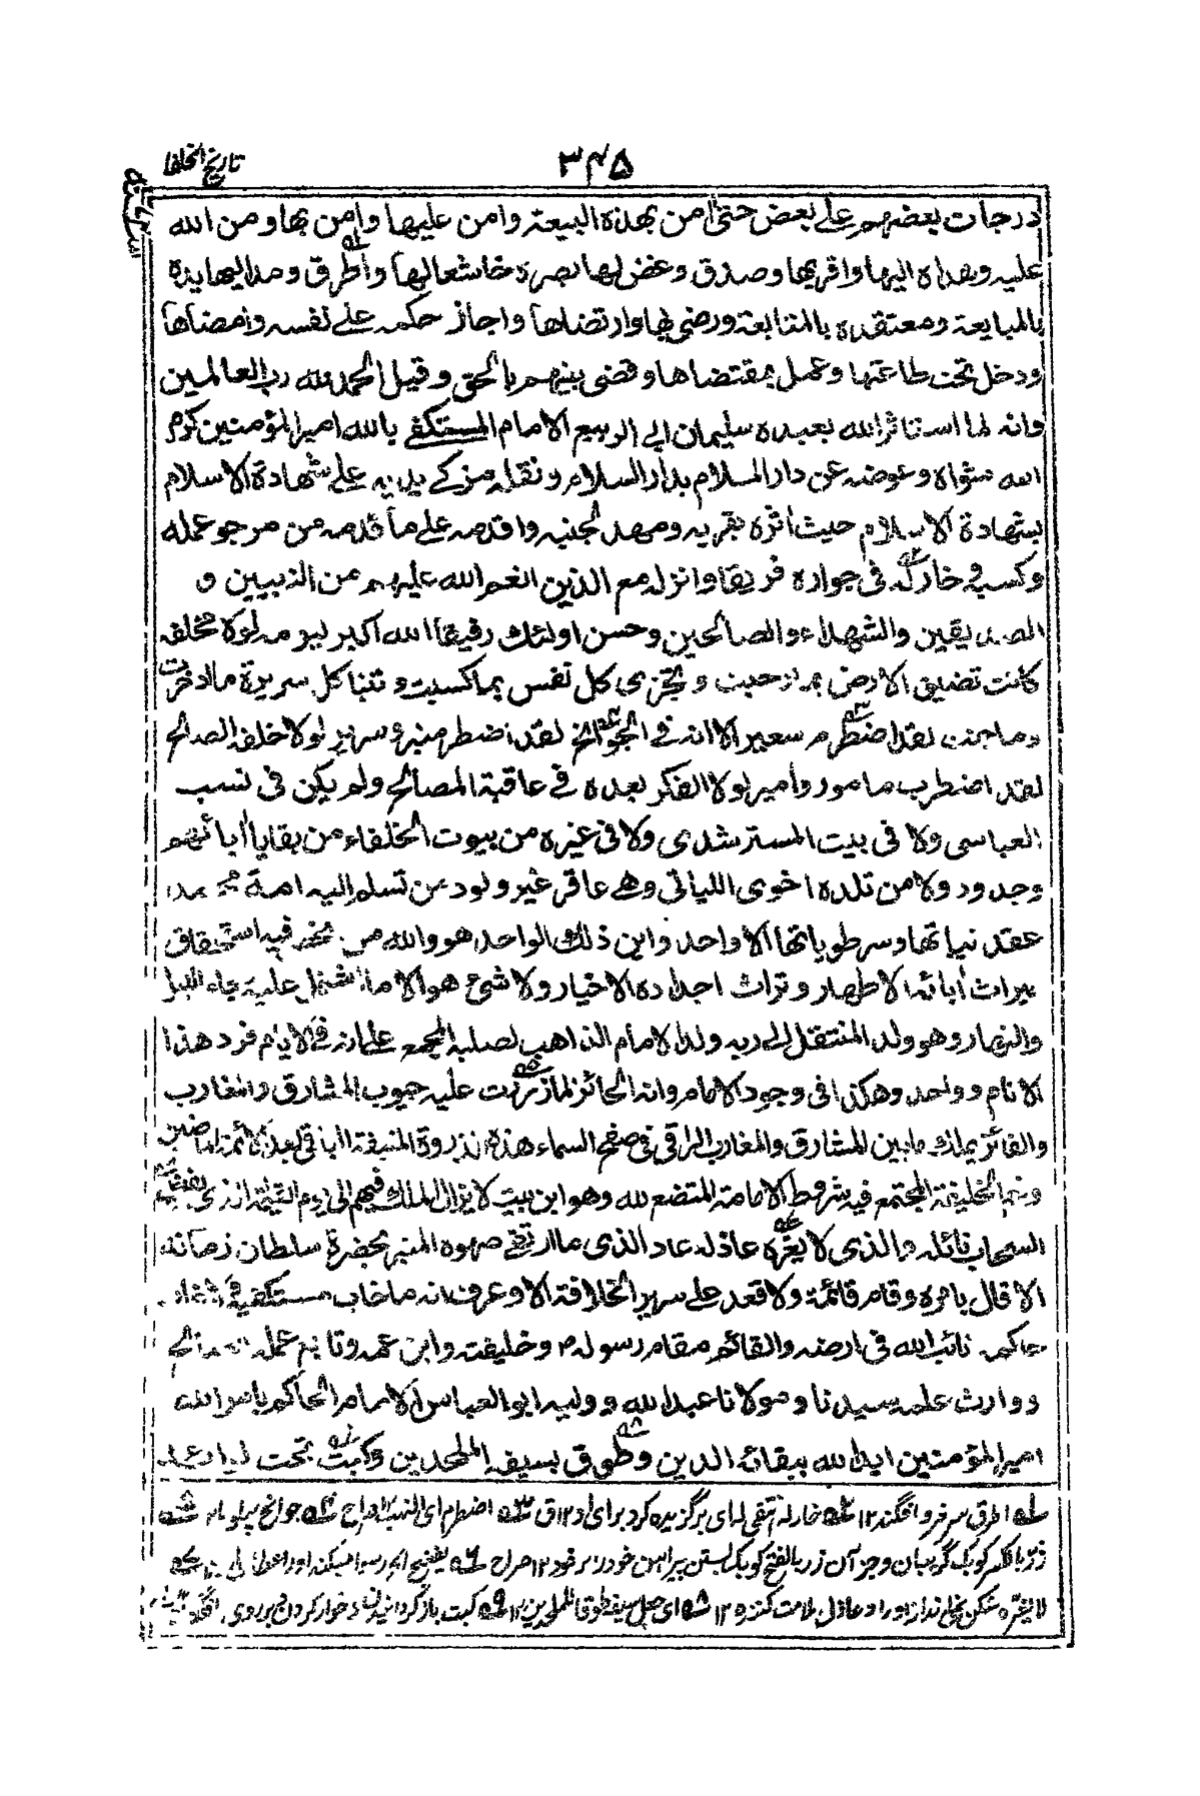 تاریخ الخلفا
۳۴۵
درجات بعضهم علے بعض حتیٰ امن بهذه البیعة وامن علیها وامن بها ومن الله
علیه وهداه الیها واقر بها وصدق وغض لها بصره خاشعا لها واطرق ومد الیها یده
بالمبایعة ومعتقده بالمتابعة ورضی بها وارتضاها واجاز حکمه علے نفسه وامضاها
ودخل تحت طاعتها وعمل بمقتضاها وقضی بینهم بالحق وقیل الحمد لله رب العالمین
وانه لما استاثر الله بعبده سلیمان ابی الربیع الامام المستکفی بالله امیر المؤمنین کرم
الله مثواه وعوضه عن دار السلام بدار السلام ونقله مزکے یدیه علے شهادة الاسلام
بشهادة الاسلام حیث اثره بقربه ومهد لجنبه واقدمه علی ما قدمه من مرجو عمله
وکسبه وخار له فی جواره فریقا وانزله مع الذین انعم الله علیهم من النبیین و
الصدیقین والشهداء والصالحین وحسن اولئك رفیقا الله اکبر لیومه لولا مخلفه
کانت تضیق الارض بما رحبت وتجزی کل نفس بما کسبت وتنبا کل سریرة ما ادخرت
وما جنت لقد اضطرم سعیر الا انه فی الجوانح لقد اضطرب منبر وسریر لولا خلفه الصالح
لقد اضطرب مامور وامیر لولا الفکر بعده فے عاقبة المصالح ولم یکن فی نسب
العباسی ولا فی بیت المسترشدی ولا فی غیره من بیوت الخلفاء من بقایا اٰبائهم
وجدود ولا من تلده اخری اللیالی وهے عاقر غیر ولود من تسلم الیه امة محمد
عقد نیاتها وسر طویاتها الا واحد واین ذلك الواحد هو والله من انحصر فیه استحقاق
میراث اٰبائه الاطهار وتراث اجداده الاخیار ولا شیء هو الا ما اشتمل علیه رداء اللیل
والنهار وهو ولد المنتقل الی ربه ولد الامام الذاهب لصلبه المجمع علے انه فے الایام فرد هذا
الانام وواحد وهکذا فی وجود الامام وانه الحائز لما زررت علیه جیوب المشارق والمغارب
والفائز بملك ما بین المشارق والمغارب الراقی فی صفح السماء هذه الذروة المنیفة الباقی بعد الائمة الماضین
ونعم الخلیفة المجتمع فیه شروط الامامة المتضع لله وهو ابن بیت لا یزال الملك فیهم الی یوم القیمة الذی یفضح
السحاب نائله والذی لا یغره عاذله عاد الذی ما ارتقے صهوة المنبر بحضرة سلطان زمانه
الا قال بامره وقام قائمة ولا قعد علے سریر الخلافة الا وعرف انه ما خاب مستکفیه
حاکمه نائب الله فی ارضه والقائم مقام رسوله ﷺ وخلیفته وابن عمه وتابع عمله الصالح
ووارث علمه سیدنا ومولانا عبد الله وولیه ابو العباس الامام الحاکم بامر الله
امیر المؤمنین اید الله ببقائه الدین وطوق بسیفه الملحدین وکبت تحت لوائه
اطرق سر فروافگند ۱۲ خار له انتقی له ای برگزیده کرد برای او ۱۲ ق اضطرم ای التهب ۱۲ صراح جوانح پهلو
زر بالکسر گویک گریبان وجز آن زر بالفتح گویک بستن پیراهن خود را بر خود ۱۲ صراح یفضح ای رسوا میکند